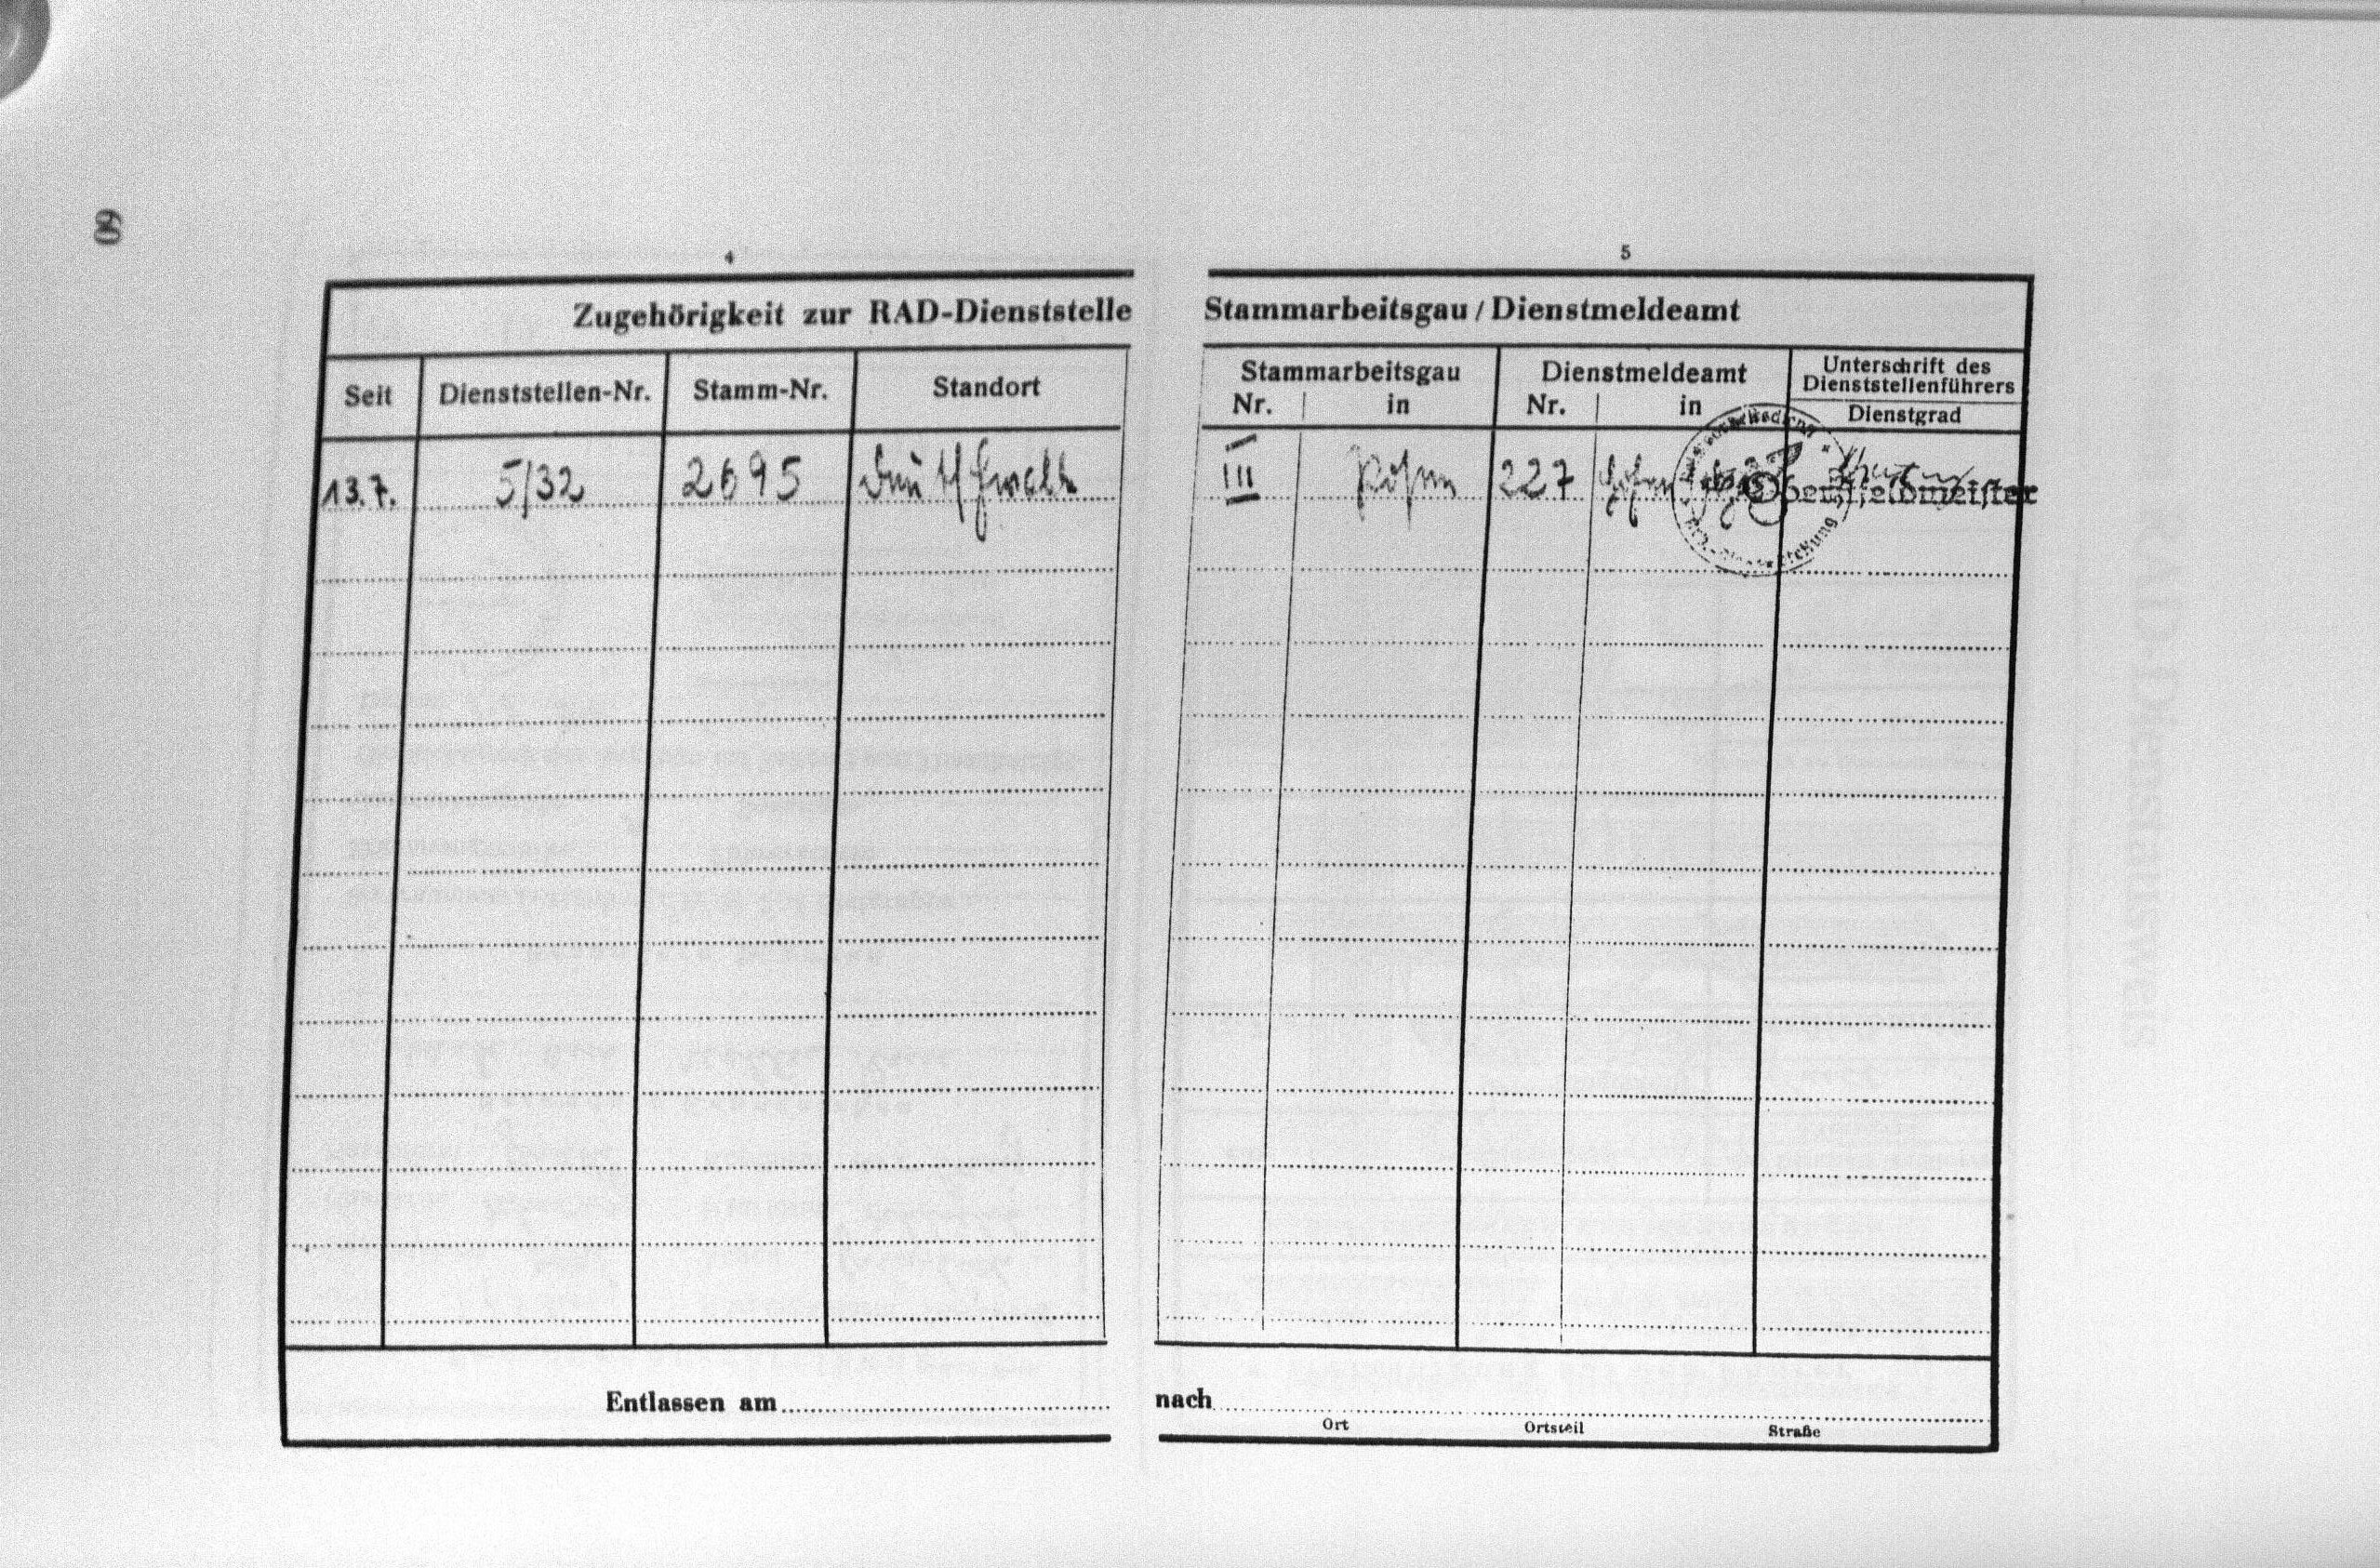 60
4
5
Zugehörigkeit zur RAD-Dienststelle
Stammarbeitsgau / Dienstmeldeamt
Seit
Dienststellen-Nr.
Stamm-Nr.
Standort
Stammarbeitsgau
Nr.
in
Dienstmeldeamt
Nr.
in
Unterschrift des
Dienststellenführers
Dienstgrad
13.7.
5/32
2695
III
227
Oberstfeldmeister
Entlassen am
nach
Ort
Ortsteil
Straße